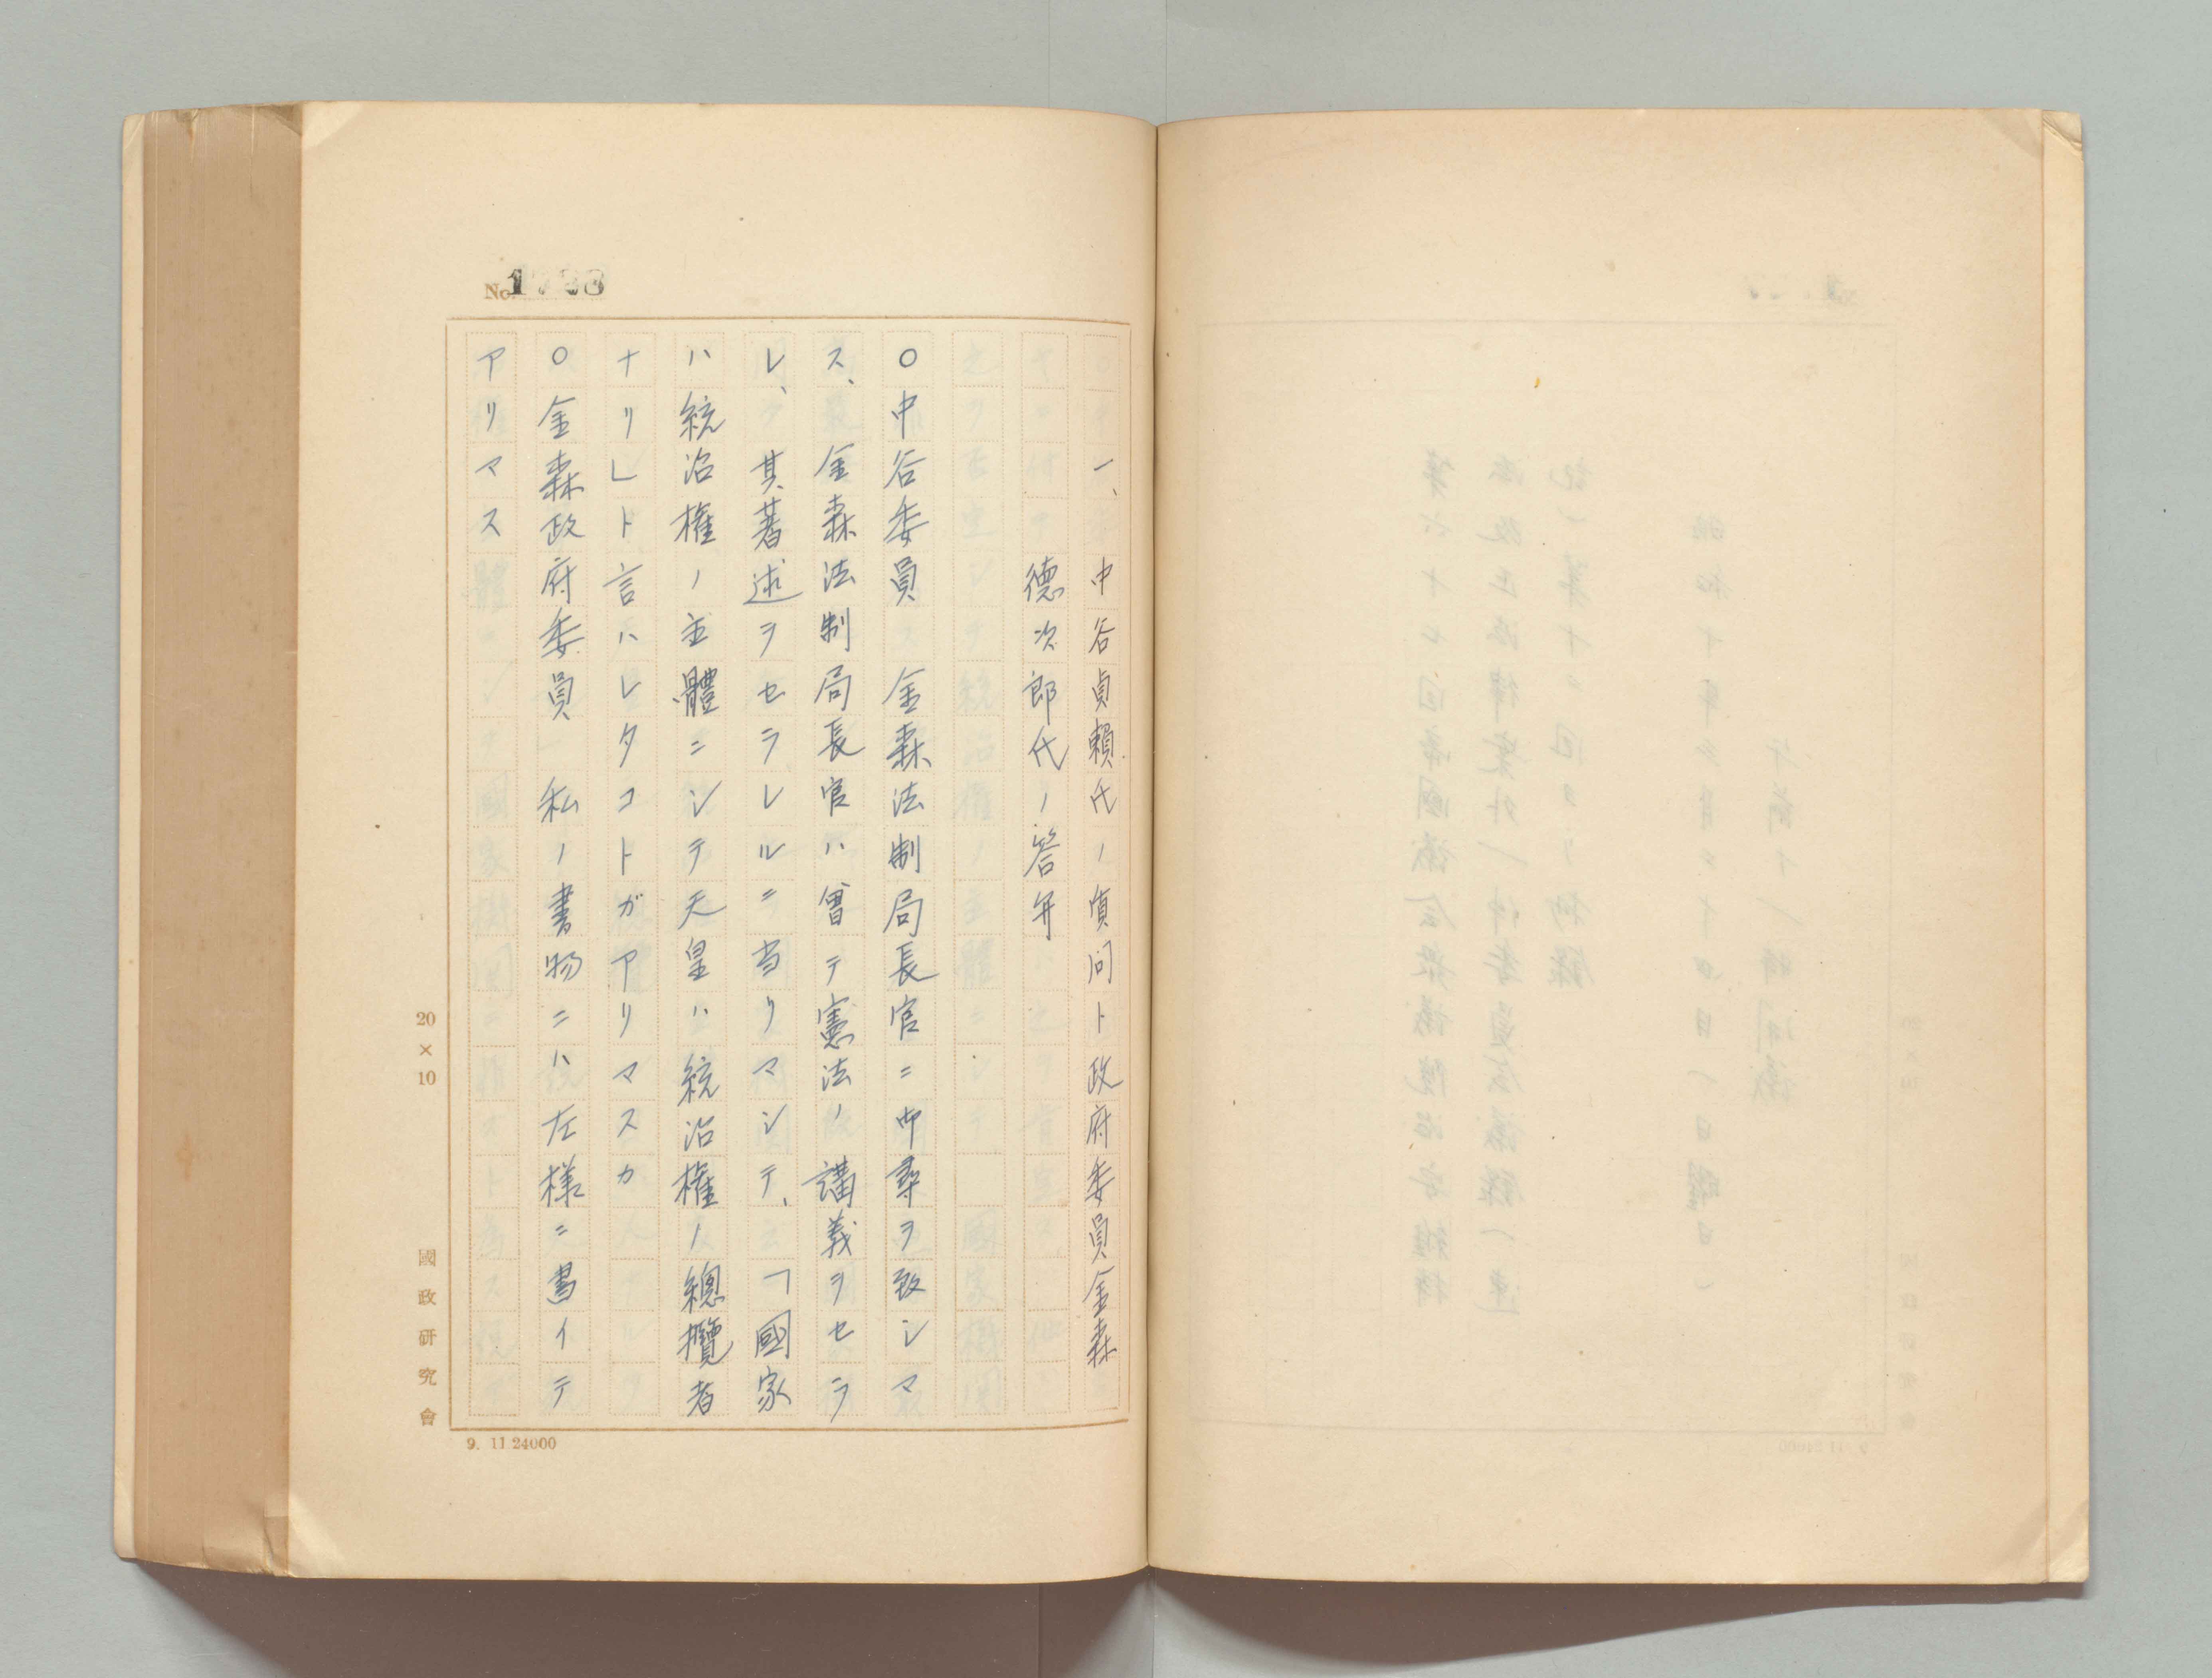 一、中谷貞賴氏ノ質問ト政府委員金森
德次郎代ノ答弁
○中谷委員　金森法制局長官ニ御尋ヲ致シマ
ス、金森法制局長官ハ曾テ憲法ノ講義ヲセラ
レ、其著述ヲセラレルニ当リマシテ、「國家
ハ統治權ノ主體ニシテ天皇ハ統治權ノ總攬者
ナリ」ト言ハレタコトガアリマスカ
○金森政府委員　私ノ書物ニハ左樣ニ書イテ
アリマス
20×10
國政研究會
9. 11 24000